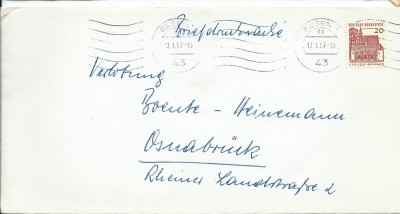 Briefdrucksache
ESSEN 1
17.1.67-15
43
ESSEN 1
17.1.67-15
43
DEUTSCHE BUNDESPOST
20
Verlobung
Boente - Heinemann
Osnabrück
Rheiner Landstraße 2